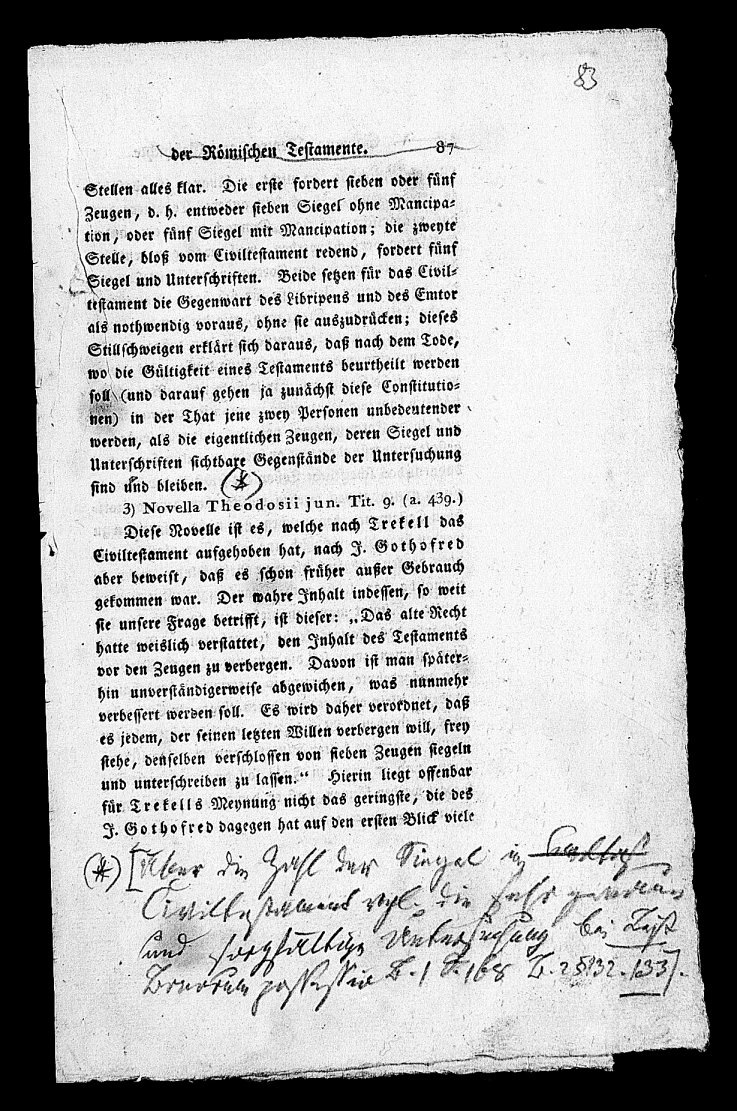 83
der Römischen Testamente. 87
Stellen alles klar. Die erste fordert sieben oder fünf
Zeugen, d. h. entweder sieben Siegel ohne Mancipa-
tion, oder fünf Siegel mit Mancipation; die zweyte
Stelle, bloß vom Civiltestament redend, fordert fünf
Siegel und Unterschriften. Beide setzen für das Civil-
testament die Gegenwart des Libripens und des Emtor
als nothwendig voraus, ohne sie auszudrücken; dieses
Stillschweigen erklärt sich daraus, daß nach dem Tode,
wo die Gültigkeit eines Testaments beurtheilt werden
soll (und darauf gehen ja zunächst diese Constitutio-
nen) in der That jene zwey Personen unbedeutender
werden, als die eigentlichen Zeugen, deren Siegel und
Unterschriften sichtbare Gegenstände der Untersuchung
sind und bleiben. (*)
3) Novella Theodosii jun. Tit. 9. (a. 439.)
Diese Novelle ist es, welche nach Trekell das
Civiltestament aufgehoben hat, nach J. Gothofred
aber beweist, daß es schon früher außer Gebrauch
gekommen war. Der wahre Inhalt indessen, so weit
sie unsere Frage betrifft, ist dieser: „Das alte Recht
hatte weislich verstattet, den Inhalt des Testaments
vor den Zeugen zu verbergen. Davon ist man später-
hin unverständigerweise abgewichen, was nunmehr
verbessert werden soll. Es wird daher verordnet, daß
es jedem, der seinen letzten Willen verbergen will, frey
stehe, denselben verschlossen von sieben Zeugen siegeln
und unterschreiben zu lassen.“ Hierin liegt offenbar
für Trekells Meynung nicht das geringste, die des
J. Gothofred dagegen hat auf den ersten Blick viele
(*) [Über die Zahl der Siegel in
Civiltestament vgl. die sehr genaue
und sorgfältige Untersuchung bei Leist
Bonorum possessio B. 1 S. 168 B. 2 § 132. 133].